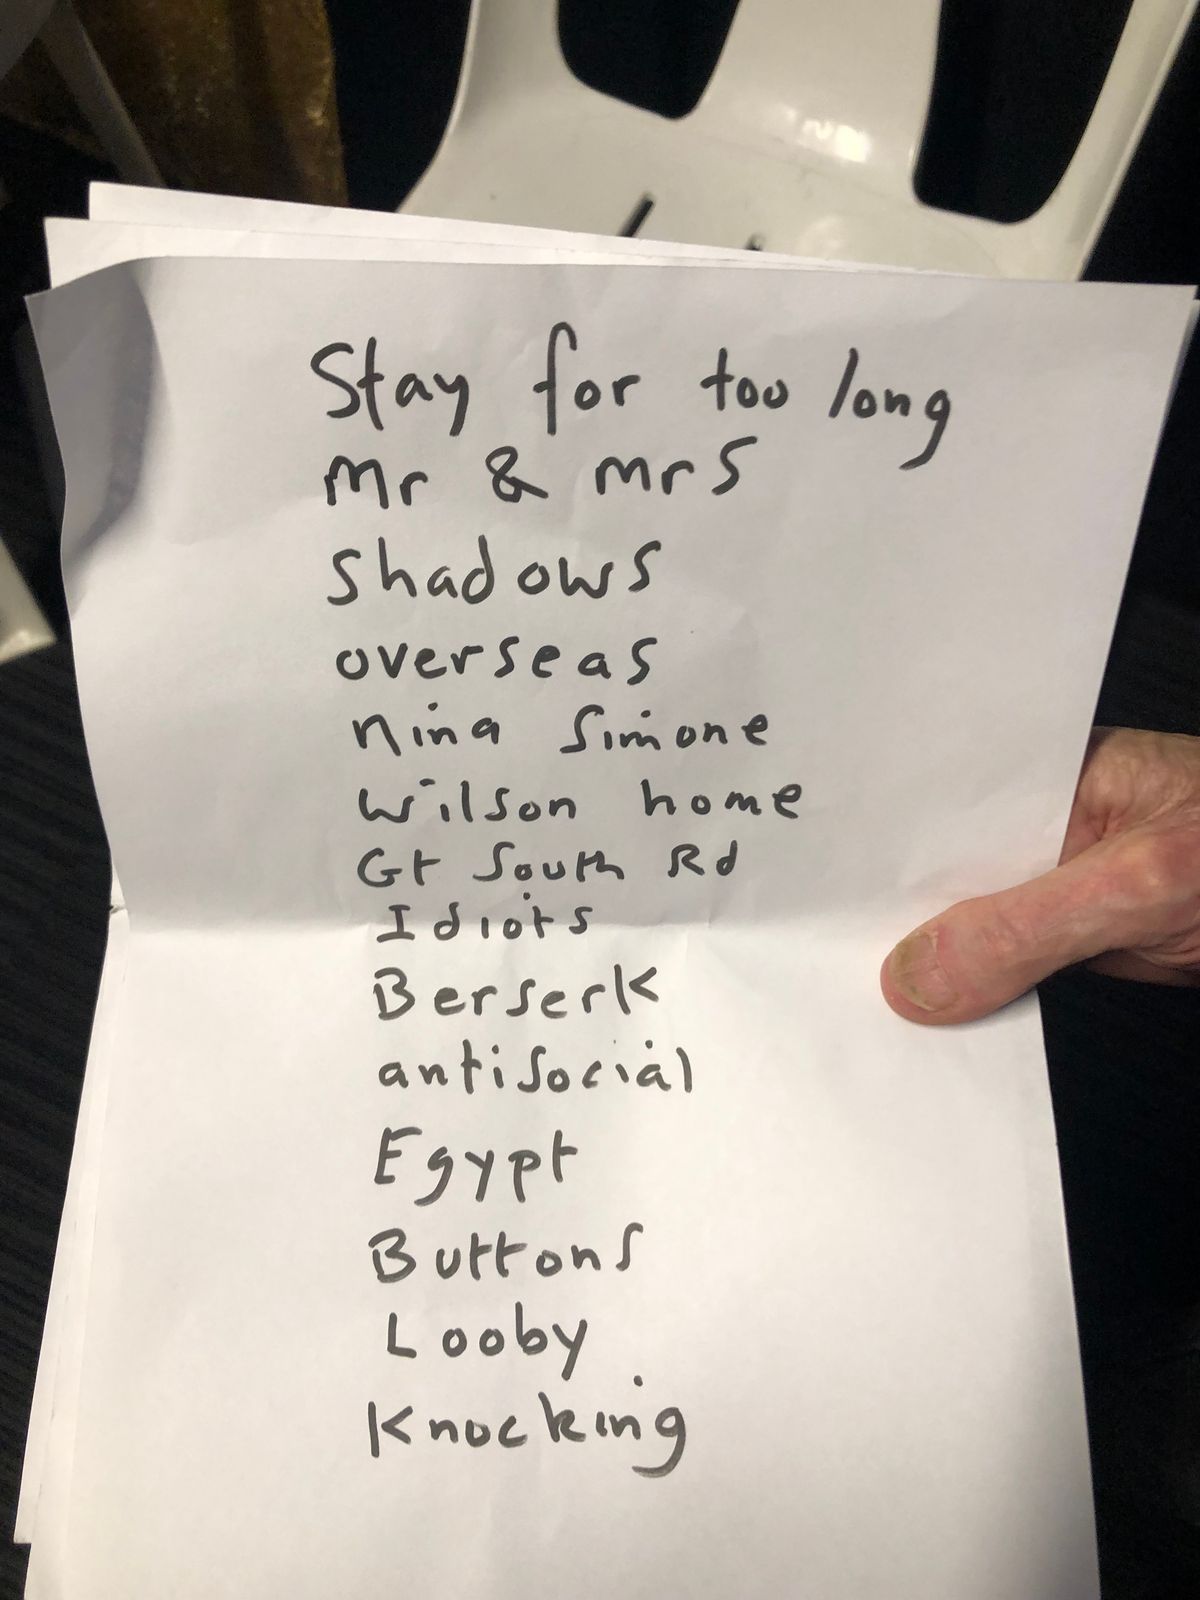 Stay for too long
Mr & mrs
shadows
overseas
Nina Simone
Wilson home
Gt South Rd
Idiots
Berserk
antisocial
Egypt
Buttons
Looby
Knocking